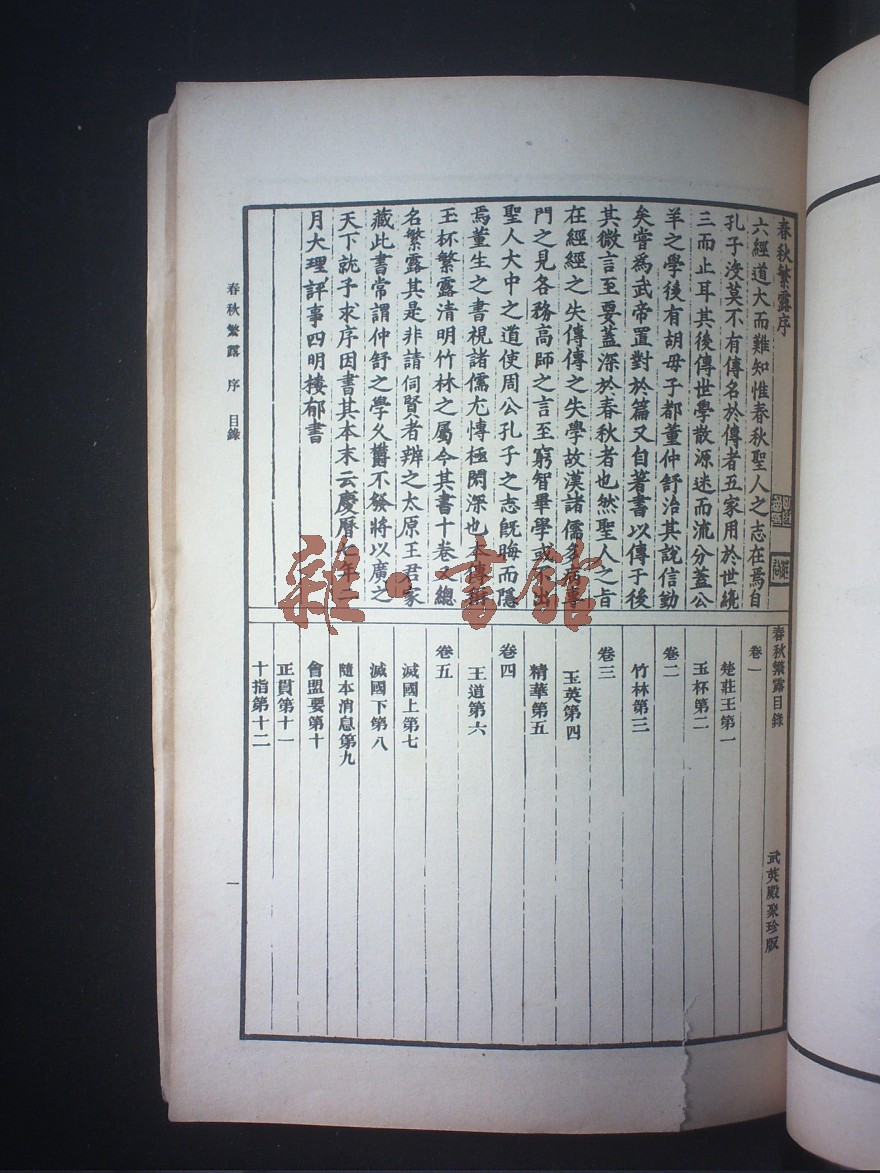 春秋繁露序
六經道大而難知惟春秋聖人之志在焉自
孔子沒莫不有傳名於傳者五家用於世纔
三而止耳其後傳世學散源迷而流分蓋公
羊之學後有胡母子都董仲舒治其說信勤
矣嘗爲武帝置對於篇又自著書以傳于後
其微言至要蓋深於春秋者也然聖人之旨
在經經之失傳傳之失學故漢諸儒多病專
門之見各務高師之言至窮智畢學或不出
聖人大中之道使周公孔子之志旣晦而隱
焉董生之書視諸儒尤博極閎深也本傳稱
玉杯繁露淸明竹林之屬今其書十卷又總
名繁露其是非請伺賢者辨之太原王君家
藏此書常謂仲舒之學久鬱不發將以廣之
天下就予求序因書其本末云慶曆七年二
月大理評事四明樓郁書
春秋繁露目錄
武英殿聚珍版
卷一
楚莊王第一
玉杯第二
卷二
竹林第三
卷三
玉英第四
精華第五
卷四
王道第六
卷五
滅國上第七
滅國下第八
隨本消息第九
會盟要第十
正貫第十一
十指第十二
春秋繁露 序 目錄
一
雜·書館